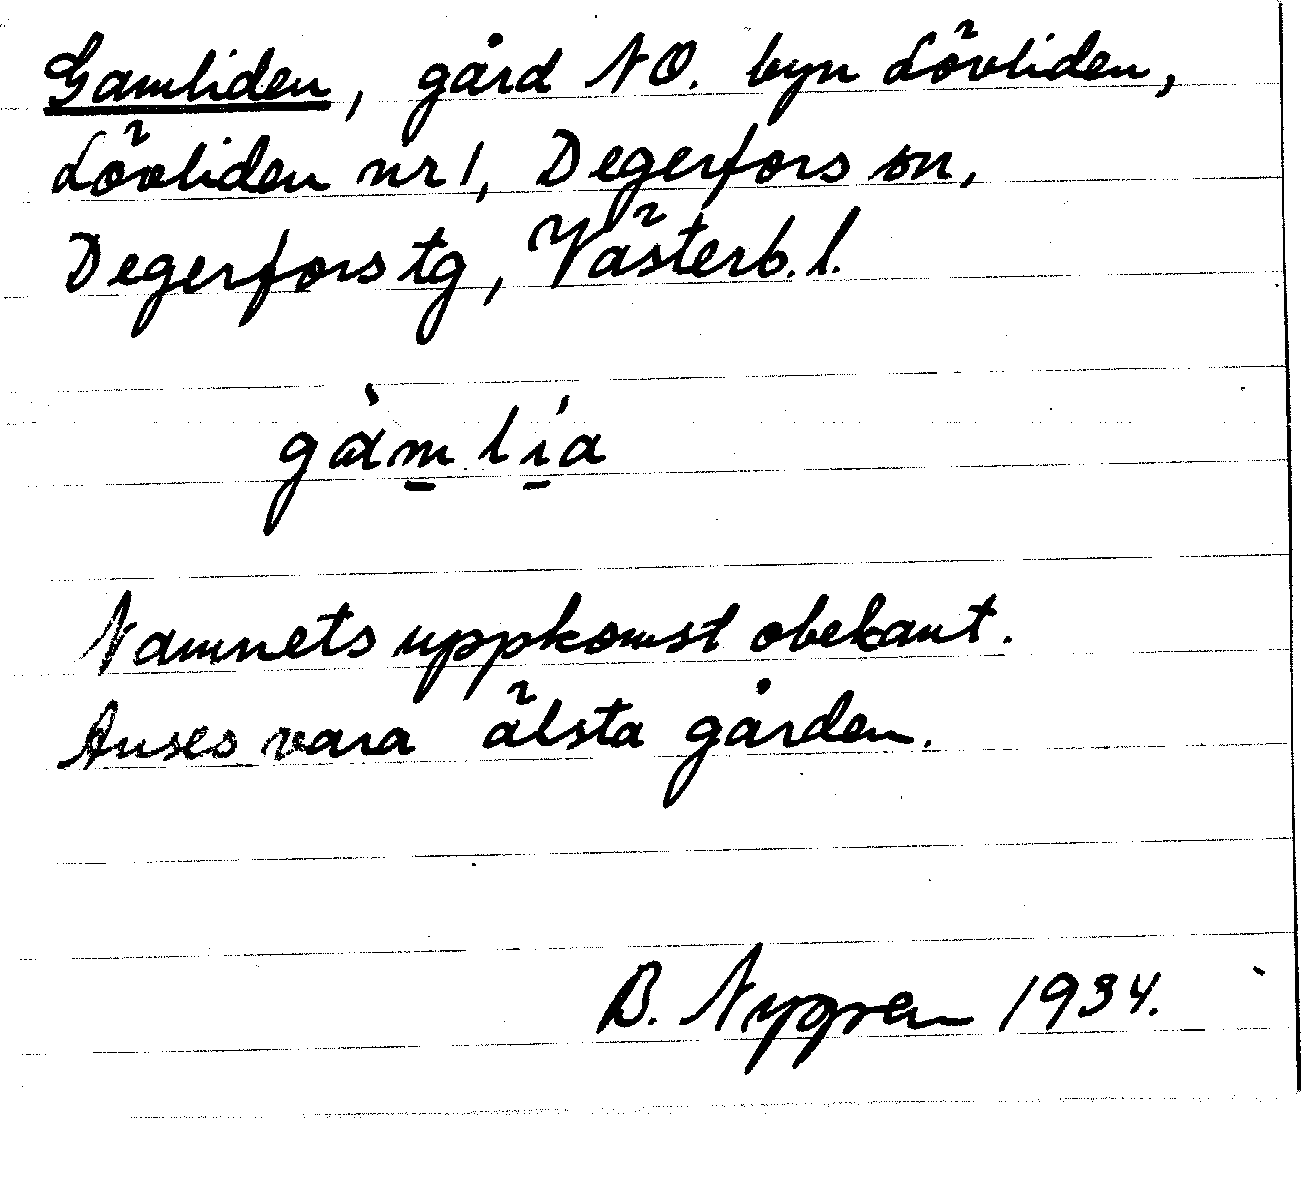 Gamliden, gård NO. byn Lövliden,
Lövliden nr 1, Degerfors sn,
Degerfors tg, Västerb. l.
gàm lía
Namnets uppkomst obekant.
Anses vara älsta gården.
B. Nygren 1934.